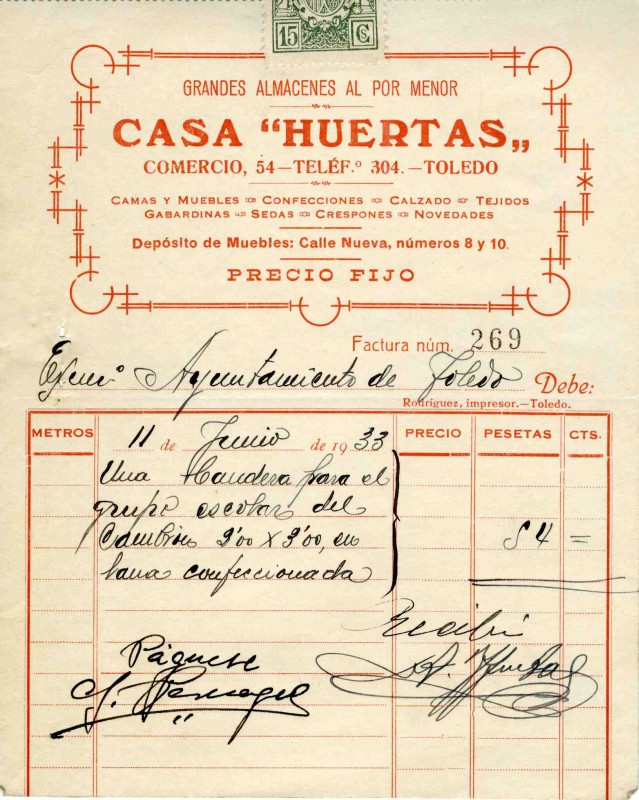 15 Cs
GRANDES ALMACENES AL POR MENOR
CASA "HUERTAS„
COMERCIO, 54—TELÉF.º 304.—TOLEDO
CAMAS Y MUEBLES CONFECCIONES CALZADO TEJIDOS
GABARDINAS SEDAS CRESPONES NOVEDADES
Depósito de Muebles: Calle Nueva, números 8 y 10.
PRECIO FIJO
Factura núm. 269
Excmº Ayuntamiento de Toledo Debe:
Rodríguez, impresor.—Toledo.
METROS 11 de Junio de 1933 PRECIO PESETAS CTS.
Una bandera para el
grupo escolar del
Cambrón 2'00 x 3'00, en 84 =
lana confeccionada
Recibí
Páguese A. Huertas